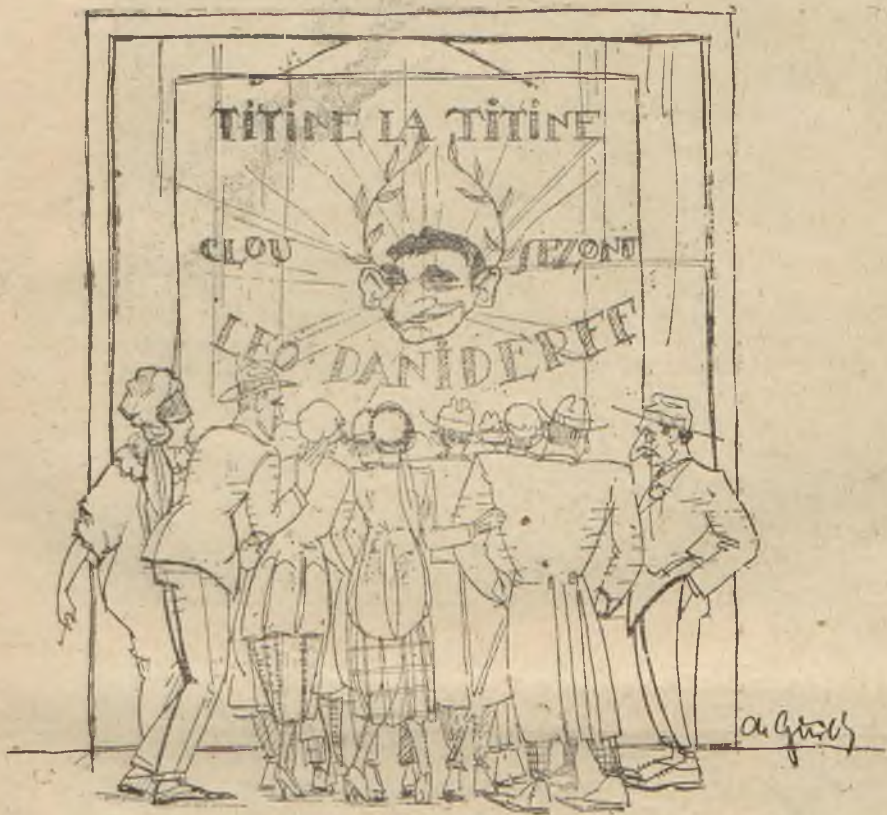 TITINE LA TITINE
CLOU SEZONU
LEO DANIDERFF